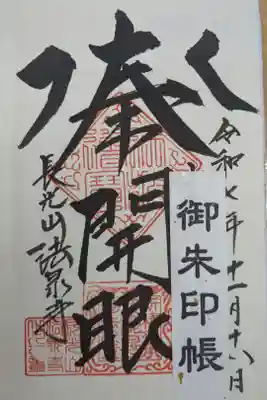 令和七年十一月十八日
御朱印帳
奉開眼
長光山
法泉寺